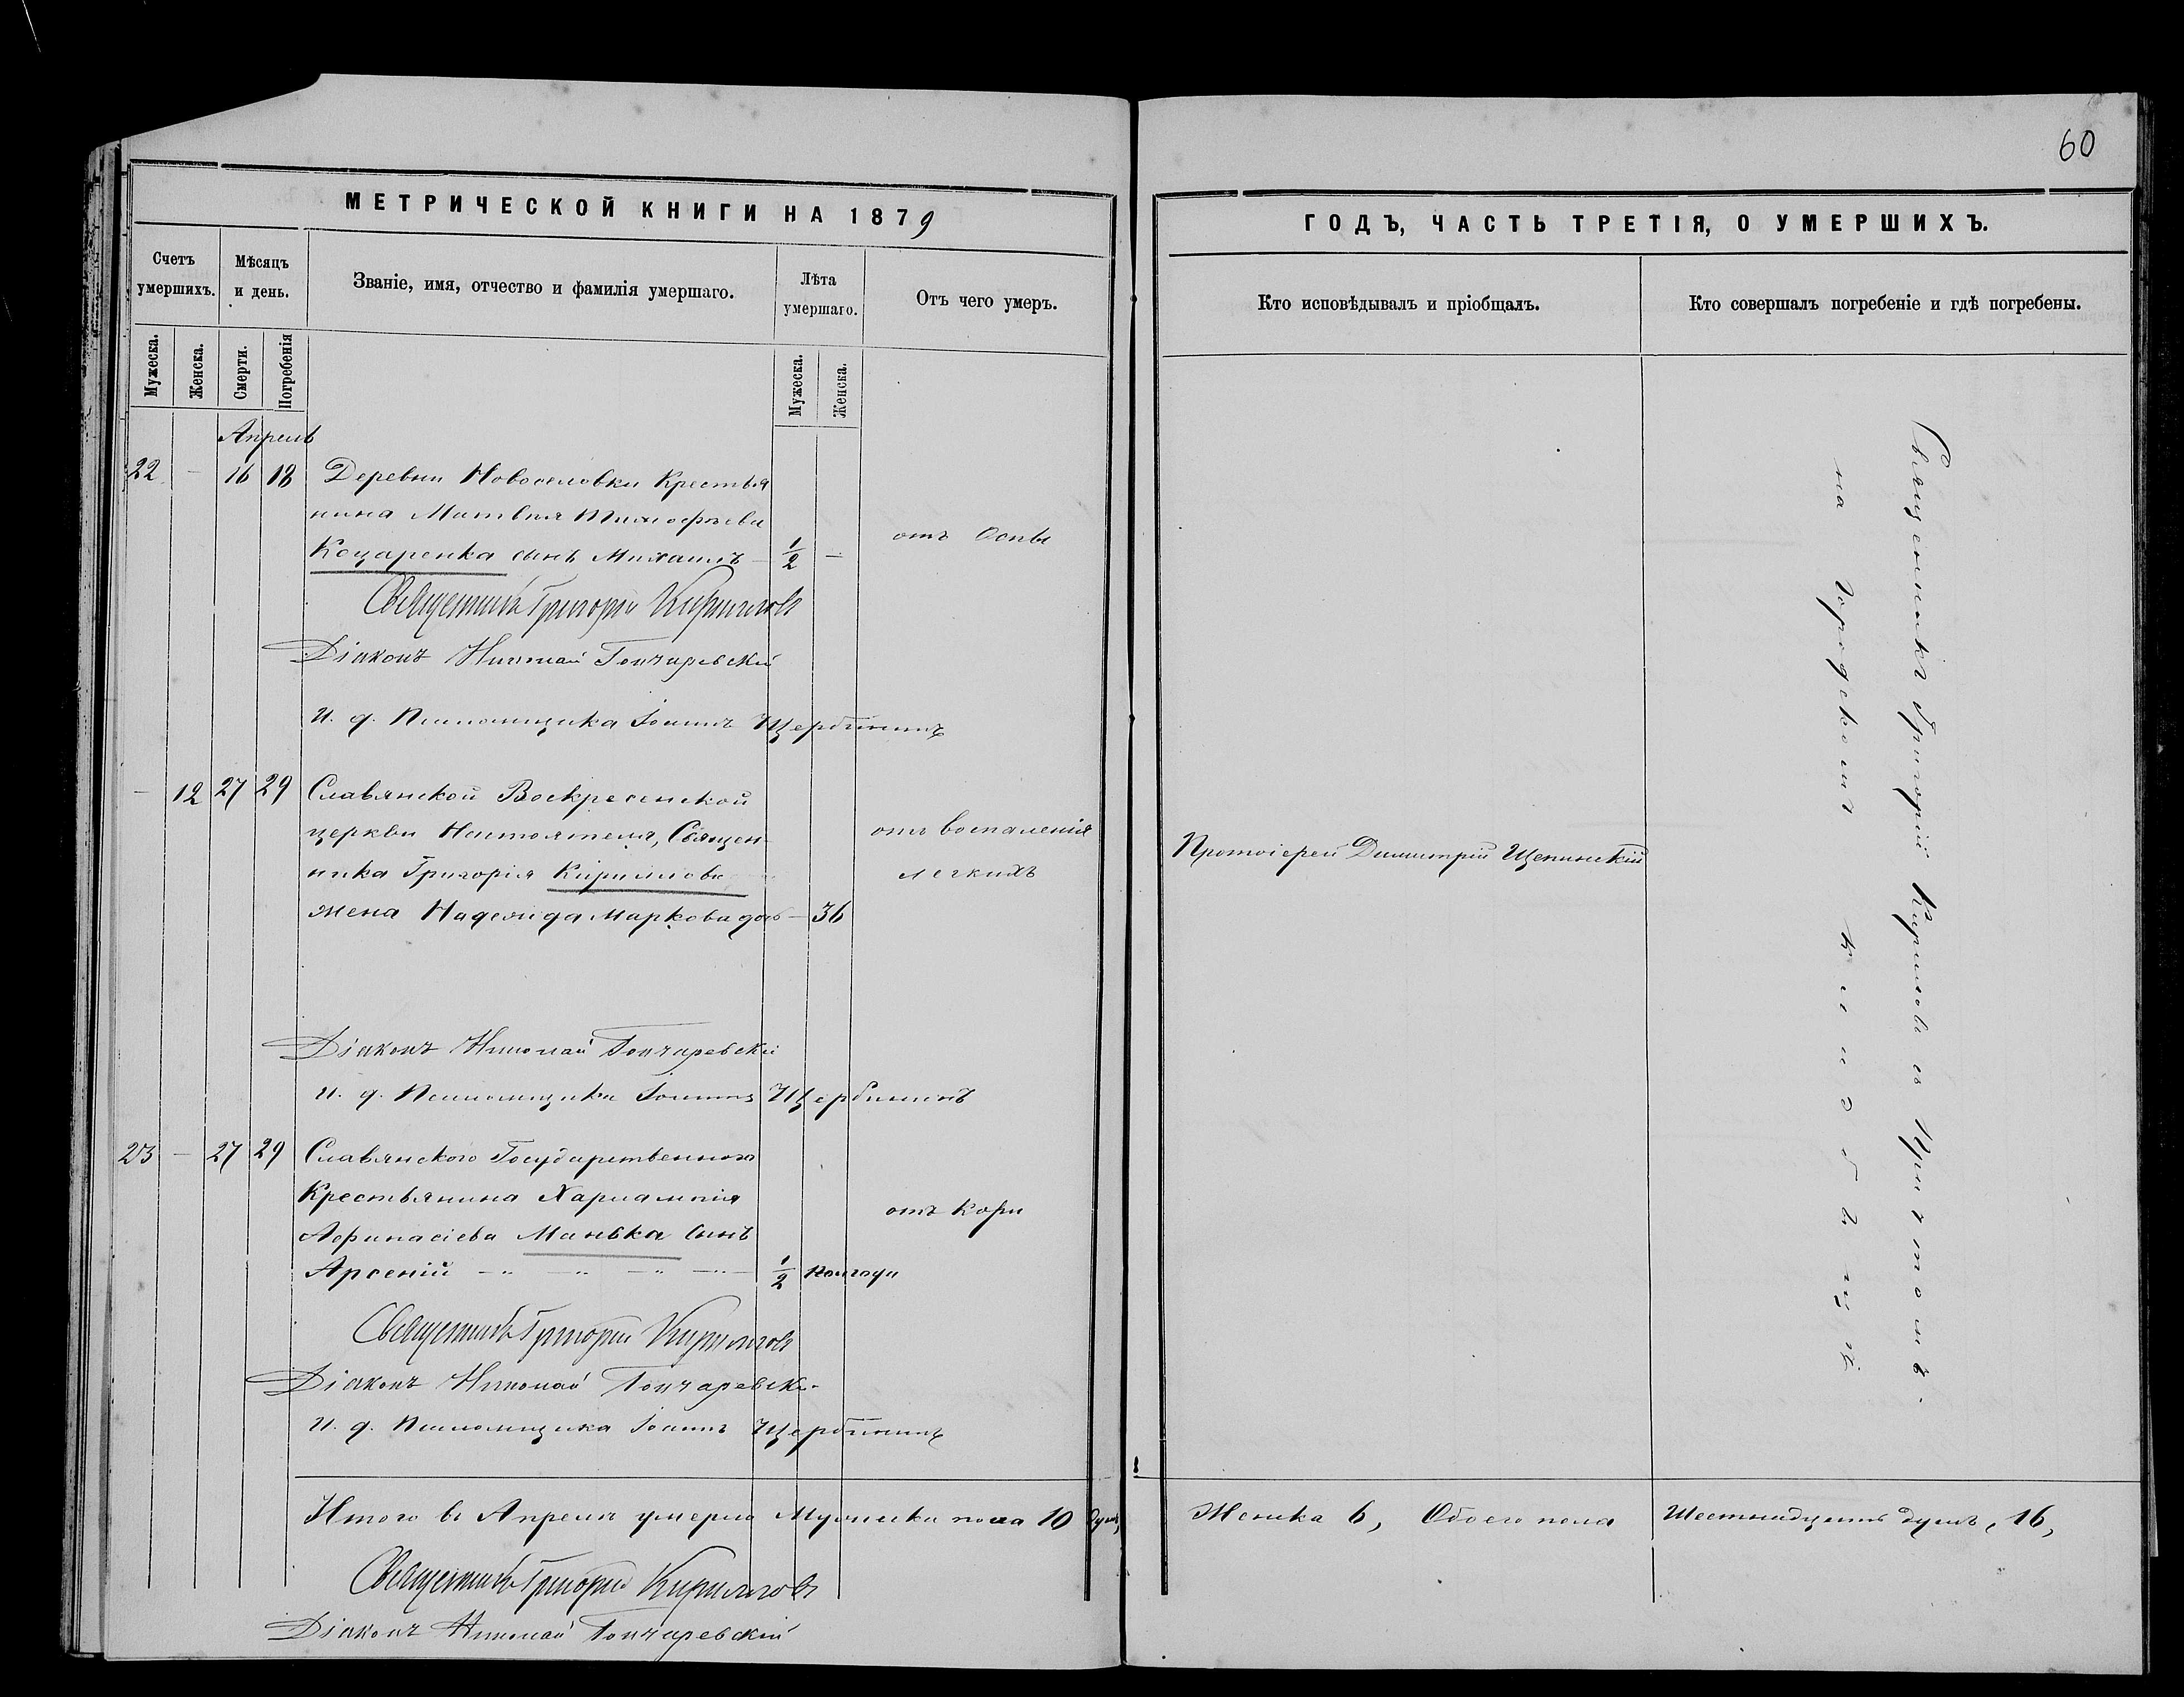 60
МЕТРИЧЕСКОЙ КНИГИ НА 1879
Счетъ умершихъ.
Мѣсяцъ и день.
Званіе, имя, отчество и фамилія умершаго.
Лѣта умершаго.
Отъ чего умеръ.
Мужеска.
Женска.
Смерти.
Погребенія
Мужеска.
Женска.
Апрель
22 — 16 18 Деревни Новоселовки Крестья
нина Матвѣя Тимофѣева
Козаренка сынъ Михаилъ — 1/2 —
отъ Оспы
Священникъ Григорій Кирилловъ
Діаконъ Николай Гончаревскій
И. д. Псаломщика Іоаннъ Щербининъ
— 12 27 29 Славянской Воскресенской
церкви Настоятеля, Священ-
ника Григорія Кириллова
жена Надежда Маркова дочь — 36
отъ воспаленія
легкихъ
Діаконъ Николай Гончаревскій
И. д. Псаломщика Іоаннъ Щербининъ
23 — 27 29 Славянского Государственного
Крестьянина Харлампія
Афанасіева Манька сынъ
Арсеній — 1/2 полгода
отъ Кори
Священникъ Григорій Кирилловъ
Діаконъ Николай Гончаревскій
И. д. Псаломщика Іоаннъ Щербининъ
Итого въ Апрелѣ умерло Мужеска пола 10 душъ,
Священникъ Григорій Кирилловъ
Діаконъ Николай Гончаревскій
ГОДЪ, ЧАСТЬ ТРЕТІЯ, О УМЕРШИХЪ.
Кто исповѣдывалъ и пріобщалъ.
Кто совершалъ погребеніе и гдѣ погребены.
Протоіерей Димитрій
Священникъ Григорій Кирилловъ съ Причтомъ
на Городскомъ кладбищѣ
Женска 6, Обоего пола Шестнадцать душъ, 16,